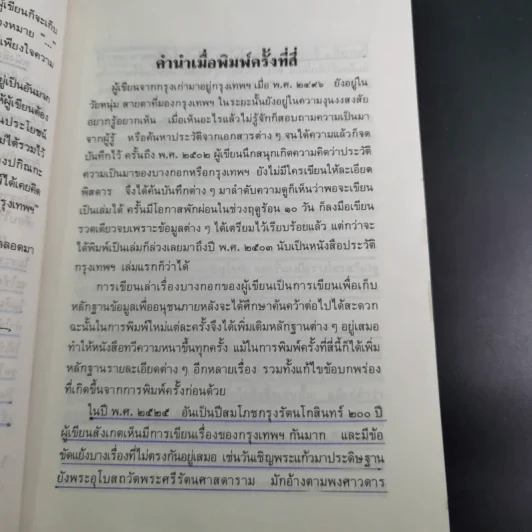 ผู้เขียนก็จะเก็บ
องหมาย "..."
เพียงใจความ
อยู่เป็นอันมาก
ให้ผู้เขียนต้อง
นประโยชน์
ม่ได้รวมไว้
องปกิณกะ
ได้เคยคิด
กรุงเทพฯ"
ตลอดมา
คำนำเมื่อพิมพ์ครั้งที่สี่
ผู้เขียนจากกรุงเก่ามาอยู่กรุงเทพฯ เมื่อ พ.ศ. ๒๔๙๖ ยังอยู่ใน
วัยหนุ่ม สายตาที่มองกรุงเทพฯ ในระยะนั้นยังอยู่ในความงุนงงสงสัย
อยากรู้อยากเห็น เมื่อเห็นอะไรแล้วไม่รู้จักก็สอบถามความเป็นมา
จากผู้รู้ หรือค้นหาประวัติจากเอกสารต่าง ๆ จนได้ความแล้วก็จด
บันทึกไว้ ครั้นถึง พ.ศ. ๒๕๐๒ ผู้เขียนนึกสนุกเกิดความคิดว่าประวัติ
ความเป็นมาของบางกอกหรือกรุงเทพฯ ยังไม่มีใครเขียนให้ละเอียด
พิสดาร จึงได้ค้นบันทึกต่าง ๆ มาลำดับความดูก็เห็นว่าพอจะเขียน
เป็นเล่มได้ ครั้นมีโอกาสพักผ่อนในช่วงฤดูร้อน ๑๐ วัน ก็ลงมือเขียน
รวดเดียวจบเพราะข้อมูลต่าง ๆ ได้เตรียมไว้เรียบร้อยแล้ว แต่กว่าจะ
ได้พิมพ์เป็นเล่มก็ล่วงเลยมาถึงปี พ.ศ. ๒๕๐๓ นับเป็นหนังสือประวัติ
กรุงเทพฯ เล่มแรกก็ว่าได้
การเขียนเล่าเรื่องบางกอกของผู้เขียนเป็นการเขียนเพื่อเก็บ
หลักฐานข้อมูลเพื่ออนุชนภายหลังจะได้ศึกษาค้นคว้าต่อไปได้สะดวก
ฉะนั้นในการพิมพ์ใหม่แต่ละครั้งจึงได้เพิ่มเติมหลักฐานต่าง ๆ อยู่เสมอ
ทำให้หนังสือทวีความหนาขึ้นทุกครั้ง แม้ในการพิมพ์ครั้งที่สี่นี้ก็ได้เพิ่ม
หลักฐานรายละเอียดต่าง ๆ อีกหลายเรื่อง รวมทั้งแก้ไขข้อบกพร่อง
ที่เกิดขึ้นจากการพิมพ์ครั้งก่อนด้วย
ในปี พ.ศ. ๒๕๒๕ อันเป็นปีสมโภชกรุงรัตนโกสินทร์ ๒๐๐ ปี
ผู้เขียนสังเกตเห็นมีการเขียนเรื่องของกรุงเทพฯ กันมาก และมีข้อ
ขัดแย้งบางเรื่องที่ไม่ตรงกันอยู่เสมอ เช่นวันเชิญพระแก้วมาประดิษฐาน
ยังพระอุโบสถวัดพระศรีรัตนศาสดาราม มักอ้างตามพงศาวดาร